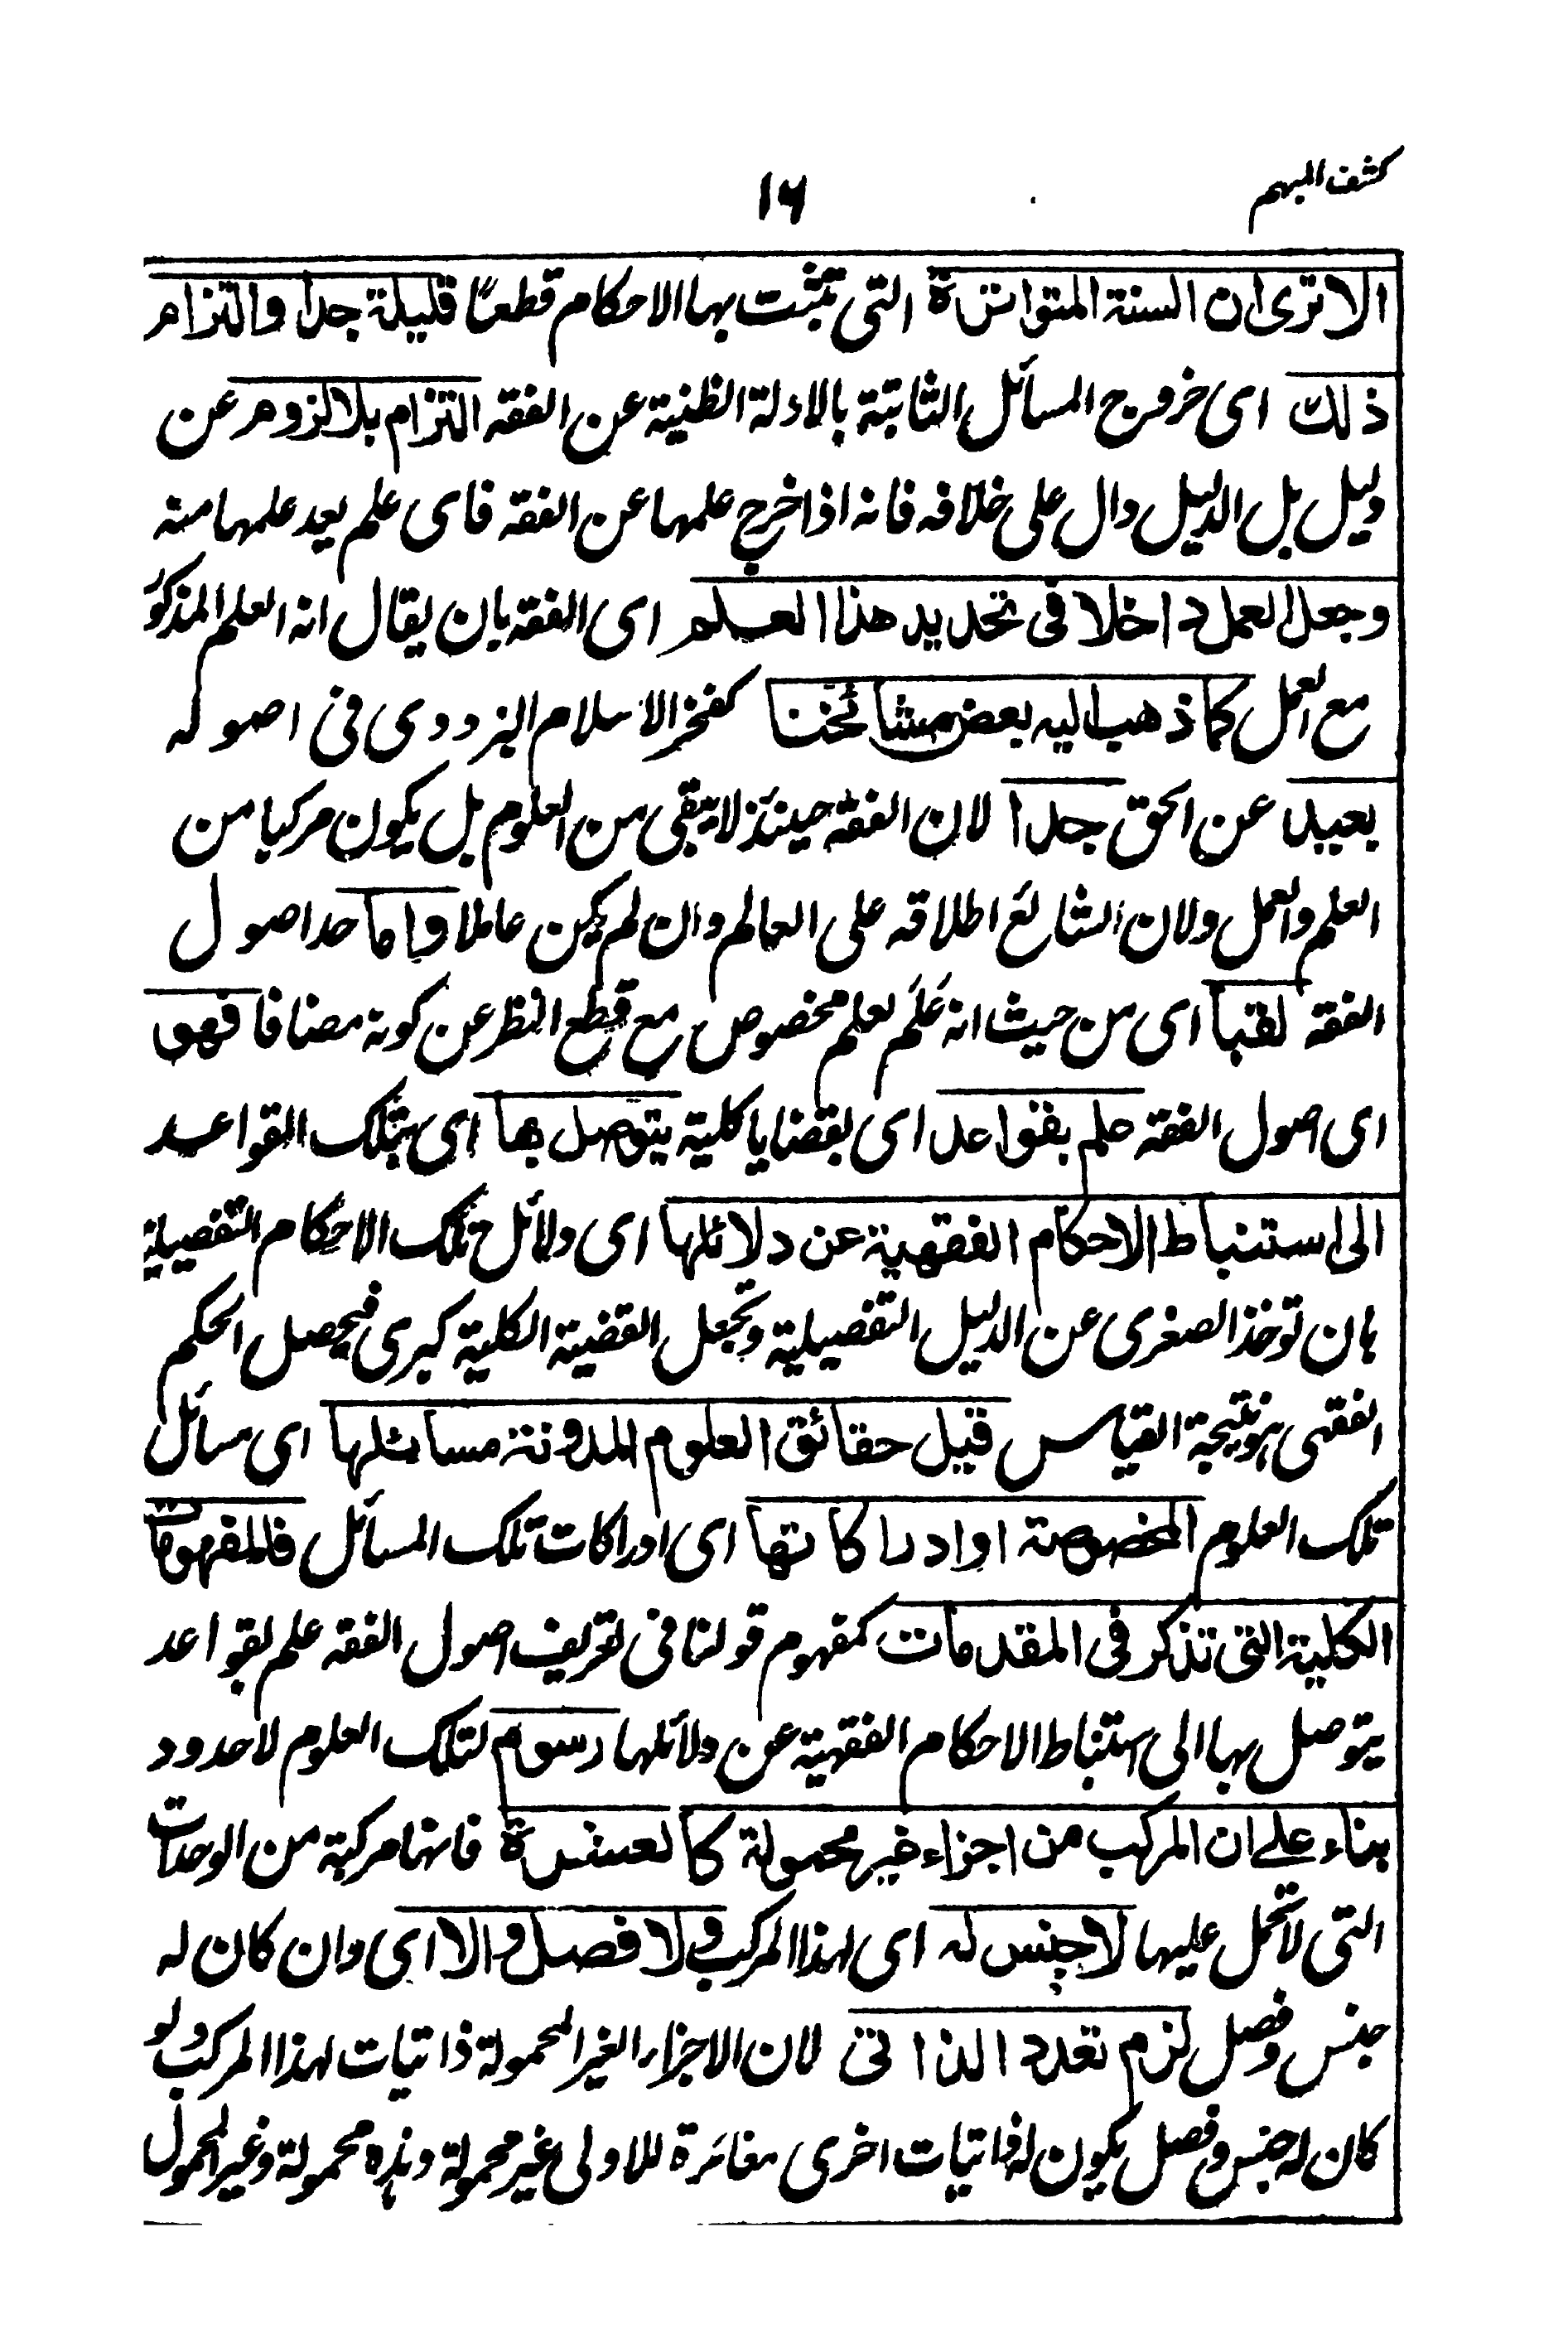 كشف المبهم
١٦
الا ترى ان السنة المتواترة التى تثبت بها الاحكام قطعًا قليلة جدا والتزام
ذلك اى خروج المسائل الثابتة بالادلة الظنية عن الفقه التزام بلا لزوم عن
دليل بل الدليل دال على خلافه فانه اذا خرج علمها عن الفقه فاى علم يعد علمها منه
وجعل العمل داخلا فى تحديد هذا العلم اى الفقه بان يقال انه العلم المذكور
مع العمل كما ذهب اليه بعض مشائخنا كفخر الاسلام البزدوى فى اصوله
بعيد عن الحق جدا لان الفقه حينئذ لا يبقى من العلوم بل يكون مركبا من
العلم والعمل ولان الشائع اطلاقه على العالم وان لم يكن عاملا واما حد اصول
الفقه لقبا اى من حيث انه عَلَم لعلم مخصوص مع قطع النظر عن كونه مضافا فهو
اى اصول الفقه علم بقواعد اى بقضايا كلية يتوصل بها اى بتلك القواعد
الى استنباط الاحكام الفقهية عن دلائلها اى دلائل تلك الاحكام التفصيلية
بان توخذ الصغرى عن الدليل التفصيلية وتجعل القضية الكلية كبرى فيحصل الحكم
الفقهى هو نتيجة القياس قيل حقائق العلوم المدونة مسائلها اى مسائل
تلك العلوم المخصوصة او ادراكاتها اى ادراكات تلك المسائل فالمفهومات
الكلية التى تذكر فى المقدمات كمفهوم قولنا فى تعريف اصول الفقه علم بقواعد
يتوصل بها الى استنباط الاحكام الفقهية عن دلائلها رسوم لتلك العلوم لا حدود
بناء على ان المركب من اجزاء غير محمولة كالعشرة فانها مركبة من الوحدات
التى لا تحمل عليها لا جنس له اى لهذا المركب ولا فصل والا اى وان كان له
جنس وفصل لزم تعدد الذاتى لان الاجزاء الغير المحمولة ذاتيات لهذا المركب ولو
كان له جنس وفصل يكون له ذاتيات اخرى مغائرة للاولى غير محمولة وهذه محمولة وغير المحمول